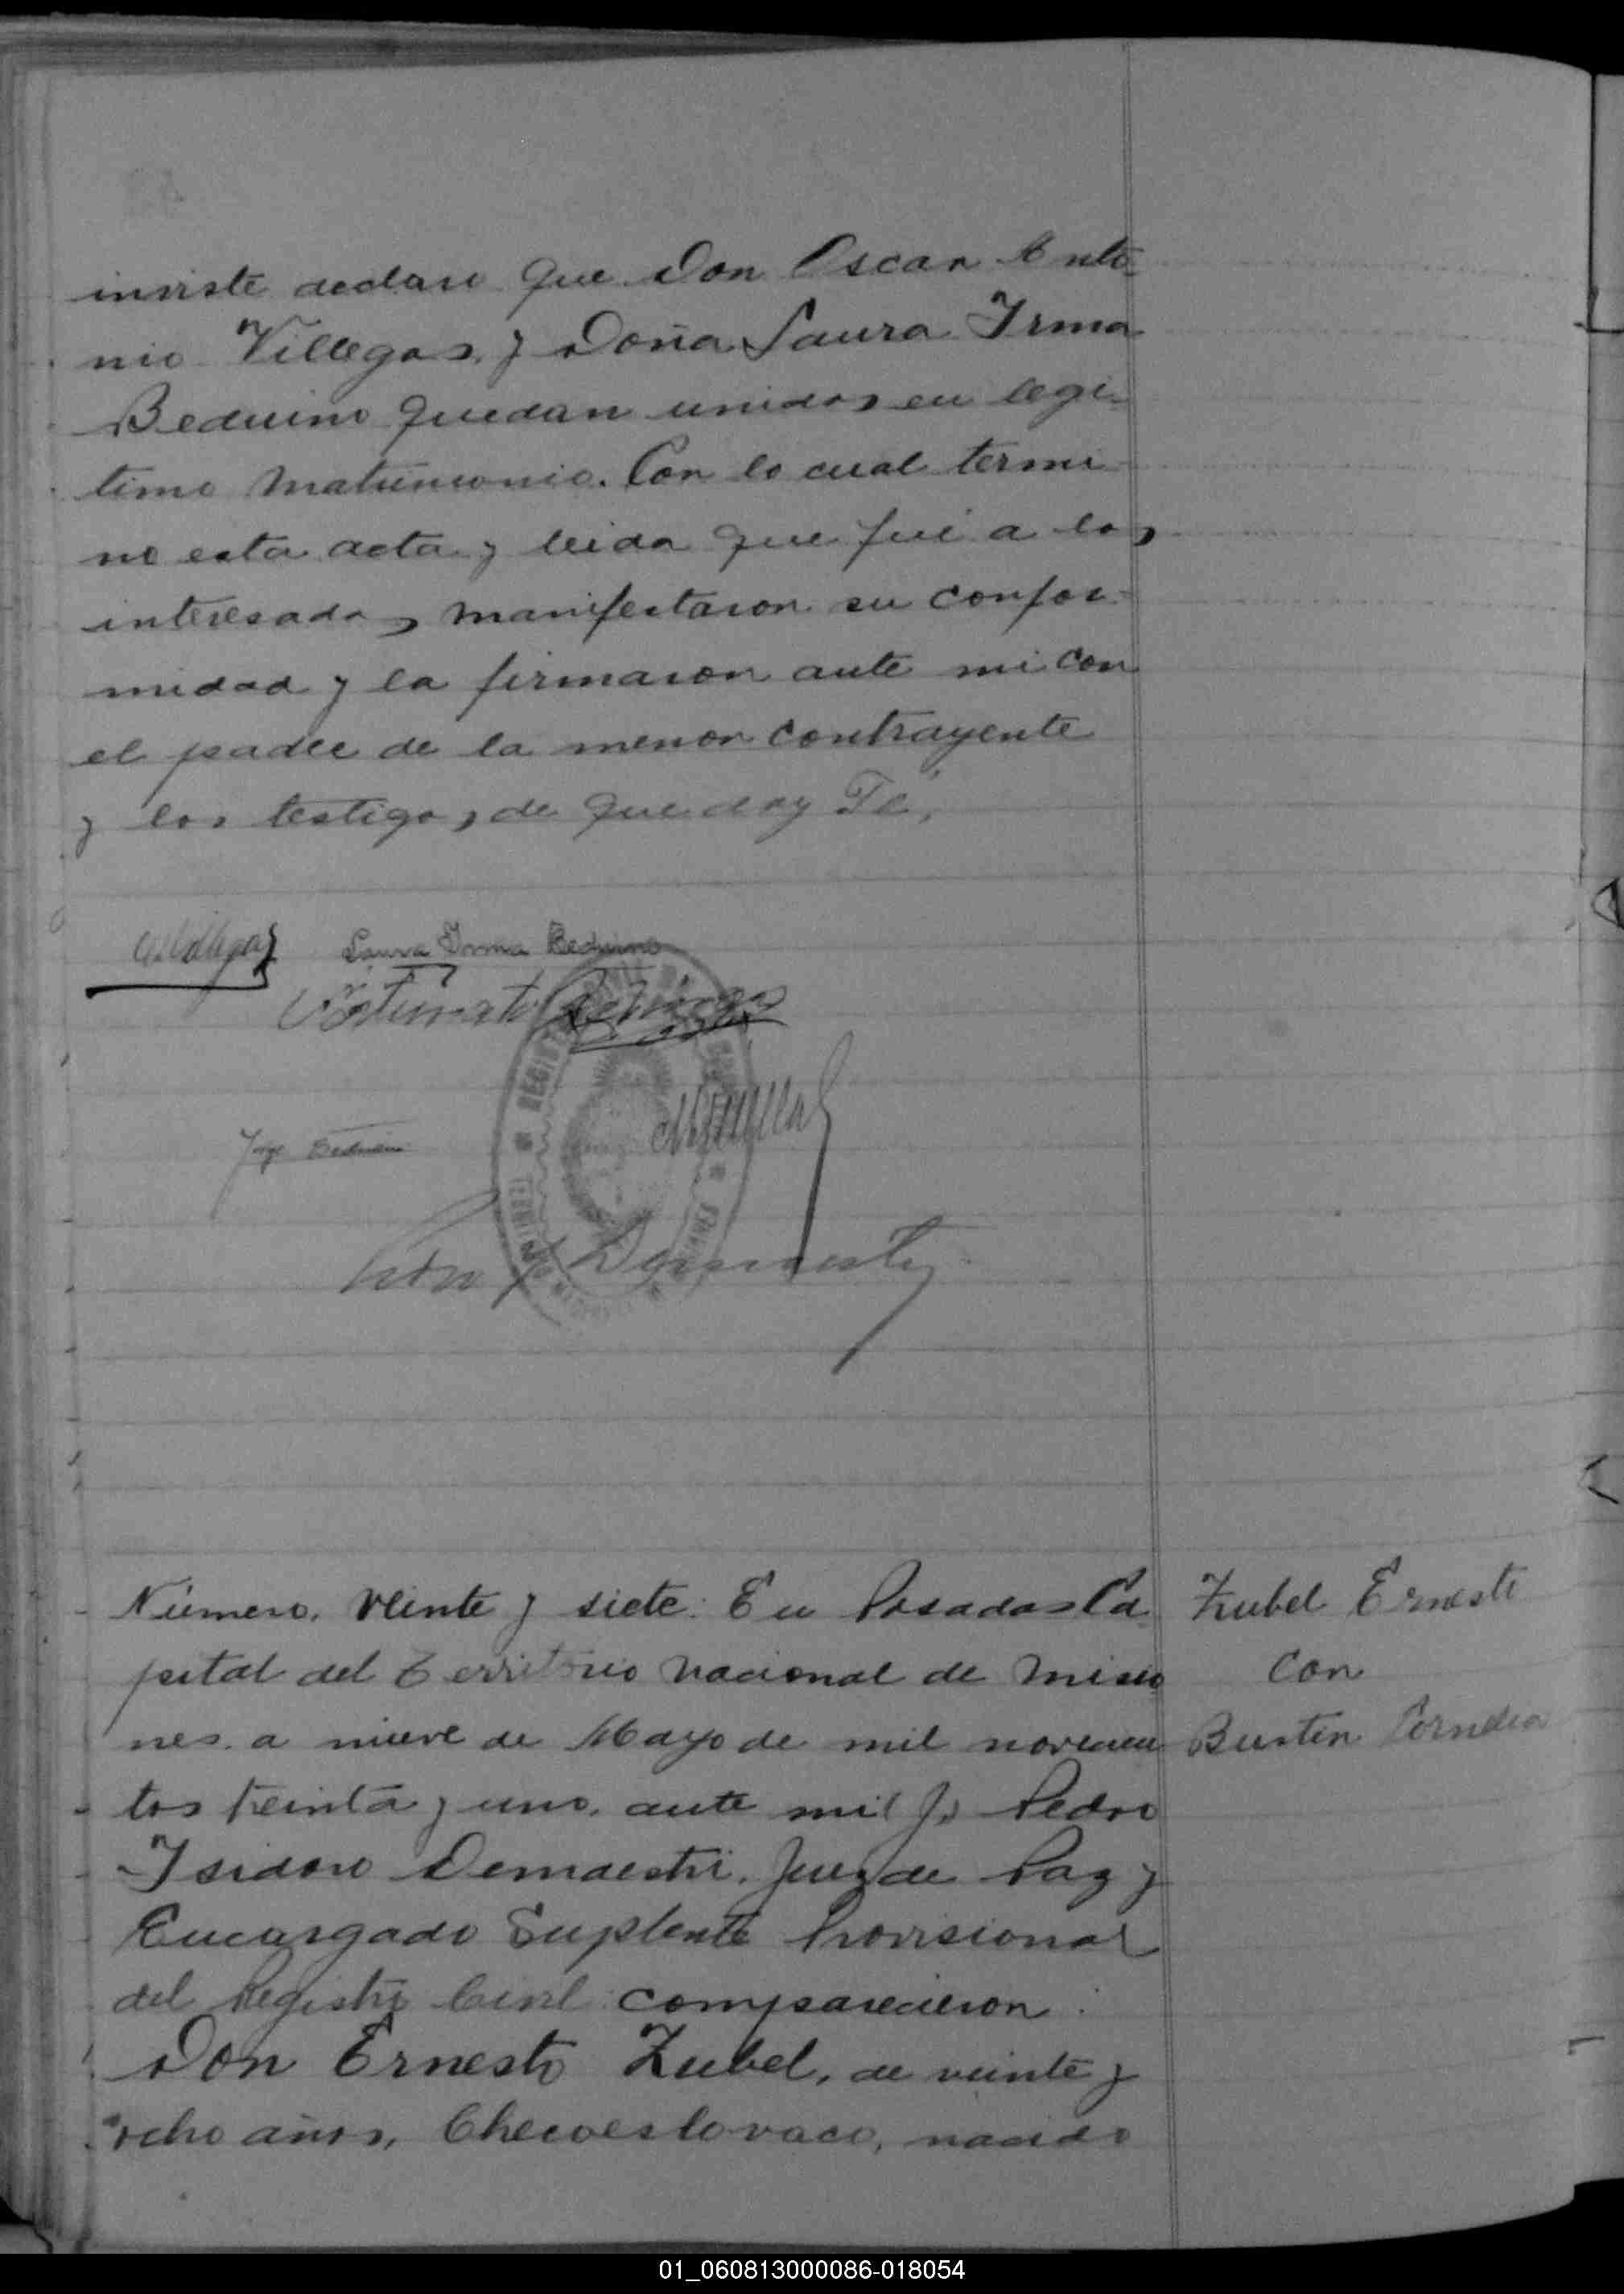 inviste declaro que Don Oscar Anto-
nio Villegas, y Doña Laura Irma
Beduino quedan unidos en legi-
timo matrimonio. Con lo cual termi-
no esta acta y leida que fué a los
interesados manifestaron su confor-
midad y la firmaron ante mi con
el padre de la menor contrayente
y los testigos, de que doy Fé,
Laura Irma Beduino
Jorge Beduino
Número. Veinte y siete: En Posadas Ca-
pital del Territorio Nacional de Misio
nes. a nueve de Mayo de mil novecien
tos treinta y uno. ante mi Pedro
Isidoro Demaestri. Juez de Paz y
Encargado Suplente Provisional
del Registro Civil comparecieron:
Don Ernesto Zubel, de veinte y
ocho años, Checoeslovaco, nacido
Zubel Ernesto
con
Burten Cornelia
01_060813000086-018054